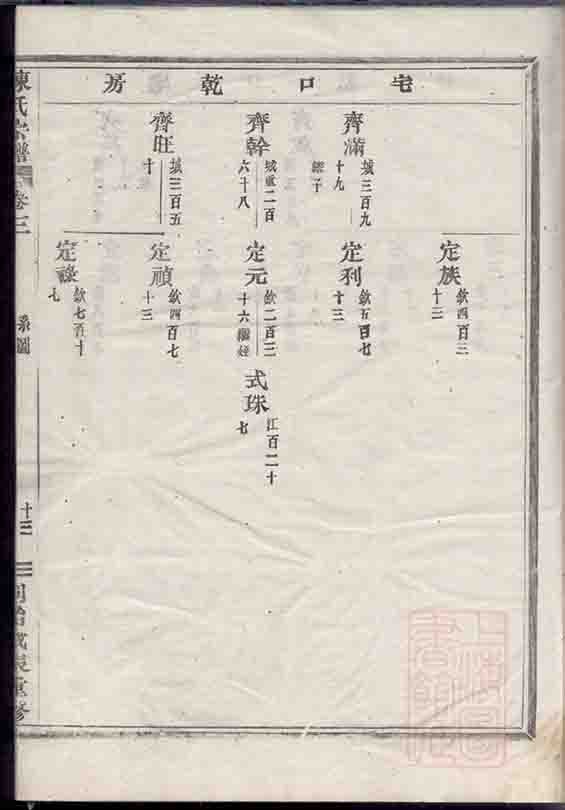 宅口乾房
齊滿
城三百九
十九
齊幹
城重二百
六十八
齊旺
城三百五
十
定族
欽四百三
十三
定利
欽五百七
十三
定元
欽二百三
十六
定禎
欽四百七
十三
定祿
欽七百十
七
式珠
江百二十
七
陳氏宗譜
卷三
系圖
十三
同治戊辰重修